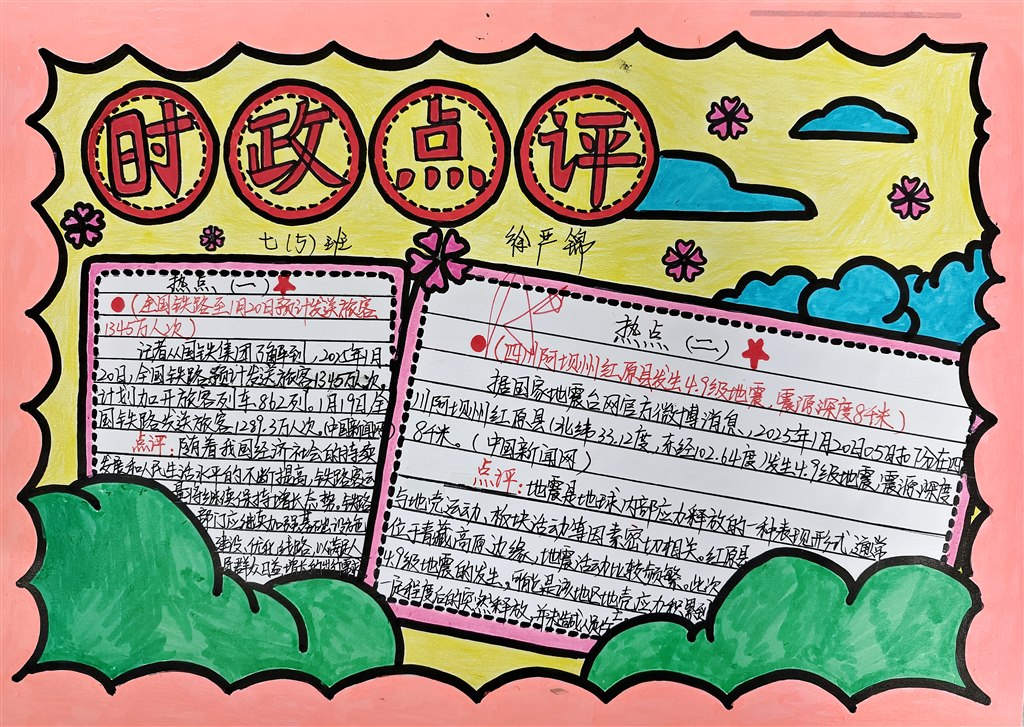 时政点评
七(5)班
徐严锦
热点(一)
(全国铁路至1月20日预计发送旅客
1345万人次)
记者从国铁集团了解到,2025年1月
20日,全国铁路预计发送旅客1345万人次。
计划加开旅客列车862列。1月19日全
国铁路共发送旅客1239.3万人次。(中国新闻网)
点评:随着我国经济社会的持续
发展和人民生活水平的不断提高,铁路客运
将继续保持增长态势。铁路
部门应继续加强基础设施
建设,优化线路,以满足人
民群众日益增长的出行需求
热点(二)
(四川阿坝州红原县发生4.9级地震,震源深度8千米)
据国家地震台网官方微博消息,2025年1月20日05时07分在四
川阿坝州红原县(北纬33.12度,东经102.64度)发生4.9级地震,震源深度
8千米。(中国新闻网)
点评:地震是地球内部应力释放的一种表现形式,通常
与地壳运动、板块活动等因素密切相关。红原县
位于青藏高原边缘,地震活动比较频繁。此次
4.9级地震的发生,可能是该地区地壳应力积累到
一定程度后的突然释放,并未造成人员